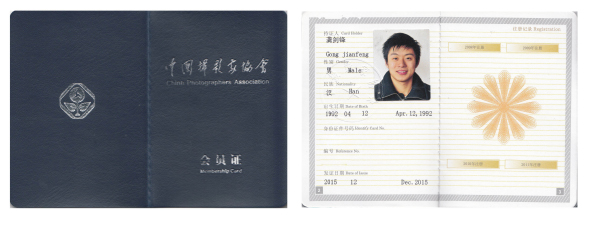 中国摄影家协会
China Photographers Association
会员证
Membership Card
持证人 Card Holder
龚剑锋
Gong jianfeng
性别 Gender
男 Male
民族 Nationality
汉 Han
出生日期 Date of Birth
1992 04 12 Apr.12,1992
身份证件号码 Identify Card No.
编号 Reference No.
发证日期 Date of Issue
2015 12 Dec.2015
注册记录 Registration